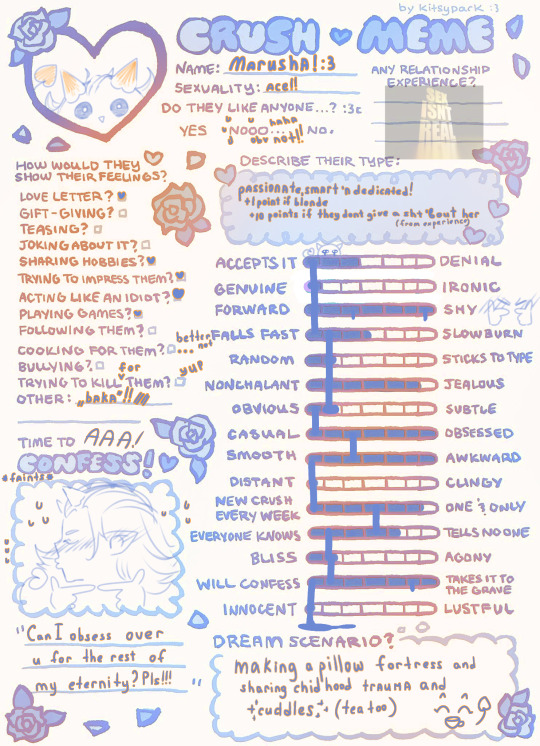 by kitsypark :3
CRUSH MEME
NAME: MarushA!:3
SEXUALITY: ace!!
DO THEY LIKE ANYONE...? :3c
haha
YES NOOO....! NO.
obv not!!
ANY RELATIONSHIP
EXPERIENCE?
SEX
ISNT
REAL
HOW WOULD THEY
SHOW THEIR FEELINGS?
LOVE LETTER?
GIFT-GIVING?
TEASING?
JOKING ABOUT IT?
SHARING HOBBIES?
TRYING TO IMPRESS THEM?
ACTING LIKE AN IDIOT?
PLAYING GAMES?
FOLLOWING THEM?
COOKING FOR THEM? ... better not
BULLYING?
TRYING TO KILL for THEM? yup
OTHER: "baka"!!
DESCRIBE THEIR TYPE:
passionate, smart 'n dedicated!
+1 point if blonde
+10 points if they dont give a sh*t 'bout her
(from experience)
ACCEPTS IT DENIAL
GENUINE IRONIC
FORWARD SHY
FALLS FAST SLOWBURN
RANDOM STICKS TO TYPE
NONCHALANT JEALOUS
OBVIOUS SUBTLE
CASUAL OBSESSED
SMOOTH AWKWARD
DISTANT CLINGY
NEW CRUSH
EVERY WEEK ONE & ONLY
EVERYONE KNOWS TELLS NO ONE
BLISS AGONY
WILL CONFESS TAKES IT TO
THE GRAVE
INNOCENT LUSTFUL
TIME TO AAA!
CONFESS!
*faints*
"Can I obsess over
u for the rest of
my eternity? Pls!!!"
DREAM SCENARIO?
making a pillow fortress and
sharing childhood trauma and
cuddles (tea too)